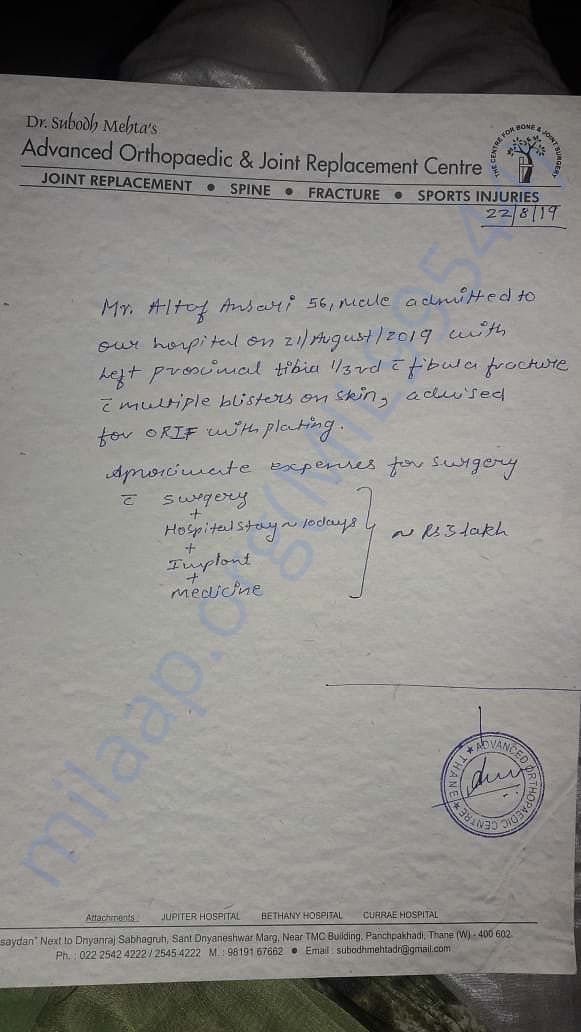 Dr. Subodh Mehta's
Advanced Orthopaedic & Joint Replacement Centre
THE CENTRE FOR BONE & JOINT SURGERY
JOINT REPLACEMENT ● SPINE ● FRACTURE ● SPORTS INJURIES
22/8/19
Mr. Altaf Ansari 56, male admitted to
our hospital on 21/August/2019 with
Left proximal tibia 1/3rd c̄ fibula fracture
c̄ multiple blisters on skin, advised
for ORIF with plating.
Aproximate expenses for surgery
c̄ surgery
+
Hospital stay ~ 10days
+
Implant
+
medicine
~ Rs 3 lakh
★ ADVANCED ORTHOPAEDIC CENTRE ★ THANE
milaap.org(MIL89954
Attachments : JUPITER HOSPITAL BETHANY HOSPITAL CURRAE HOSPITAL
saydan" Next to Dnyanraj Sabhagruh, Sant Dnyaneshwar Marg, Near TMC Building, Panchpakhadi, Thane (W) - 400 602.
Ph. : 022 2542 4222 / 2545 4222 M. : 98191 67662 ● Email : subodhmehtadr@gmail.com